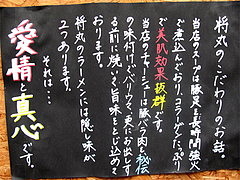 将丸のこだわりのお話。
当店のスープは豚足を長時間強火
でご煮込んでおり、コラーゲンたっぷり
で美肌効果抜群です。
当店のチャーシューは豚バラ肉を秘伝
の味付けでじっくり、更にお出しす
る前に焼いて旨味をとじ込めて
おります。
将丸のラーメンには隠し味が
2つあります。
それは…
愛情と真心です。